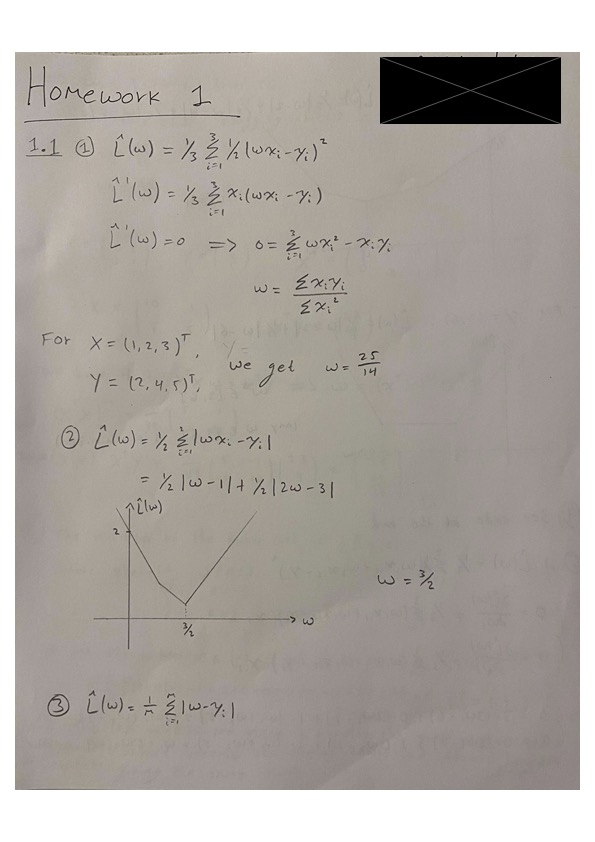 Homework 1
1.1 ① L̂(w) = 1/3 Σ_{i=1}^{3} 1/2 (wx_i - y_i)^2
L̂'(w) = 1/3 Σ_{i=1}^{3} x_i(wx_i - y_i)
L̂'(w) = 0 => 0 = Σ_{i=1}^{3} wx_i^2 - x_i y_i
w = Σx_i y_i / Σx_i^2
For X = (1, 2, 3)^T,
Y = (2, 4, 5)^T, we get w = 25/14
② L̂(w) = 1/2 Σ_{i=1}^{2} |wx_i - y_i|
= 1/2 |w - 1| + 1/2 |2w - 3|
L̂(w)
2
w = 3/2
w
3/2
③ L̂(w) = 1/n Σ_{i=1}^{n} |w - y_i|